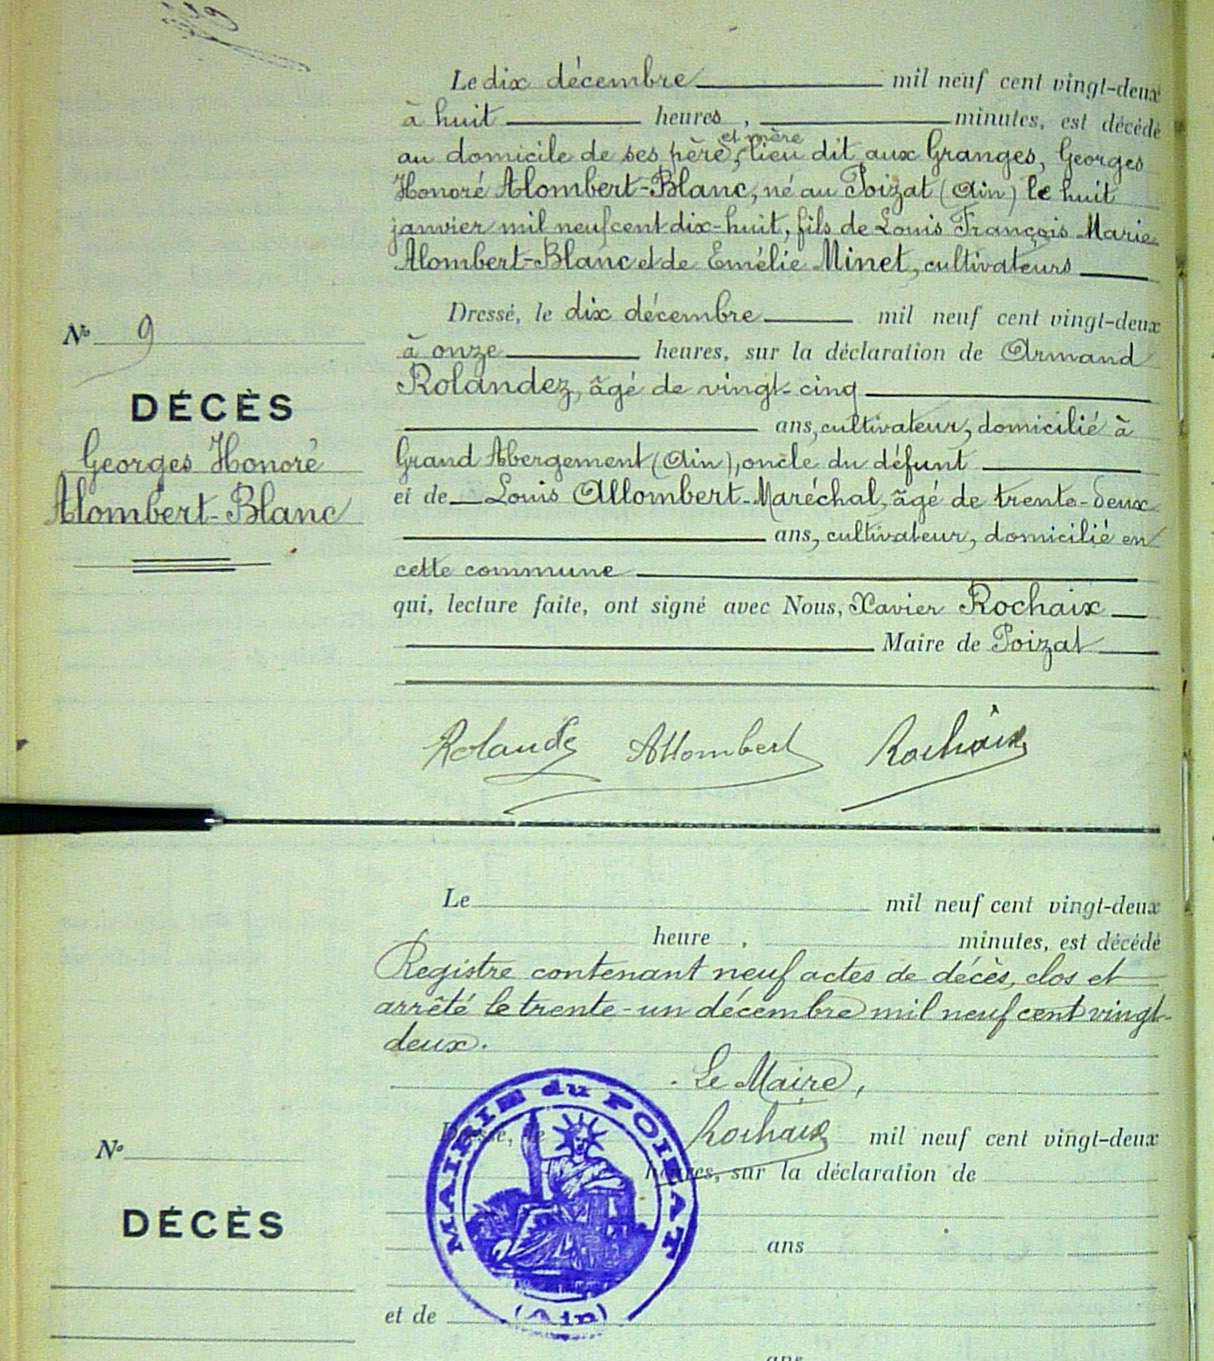 Le dix décembre mil neuf cent vingt-deux
à huit heures, minutes, est décédé
et mère
au domicile de ses père, lieu dit aux Granges, Georges
Honoré Alombert-Blanc, né au Poizat (Ain) le huit
janvier mil neuf cent dix-huit, fils de Louis François Marie
Alombert-Blanc et de Emélie Minet, cultivateurs
Dressé, le dix décembre mil neuf cent vingt-deux
N° 9
à onze heures, sur la déclaration de Armand
Rolandez, âgé de vingt-cinq
DÉCÈS
ans, cultivateur, domicilié à
Georges Honoré
Grand Abergement (Ain), oncle du défunt
Alombert-Blanc
et de Louis Allombert-Maréchal, âgé de trente-deux
ans, cultivateur, domicilié en
cette commune
qui, lecture faite, ont signé avec Nous, Xavier Rochaix
Maire de Poizat
Rolandez Allombert Rochaix
Le mil neuf cent vingt-deux
heure, minutes, est décédé
Registre contenant neuf actes de décès, clos et
arrêté le trente-un décembre mil neuf cent vingt-
deux.
Le Maire,
Rochaix
Dressé, le mil neuf cent vingt-deux
N°
heures, sur la déclaration de
DÉCÈS
ans
et de
ans
MAIRIE du POIZAT
(Ain)